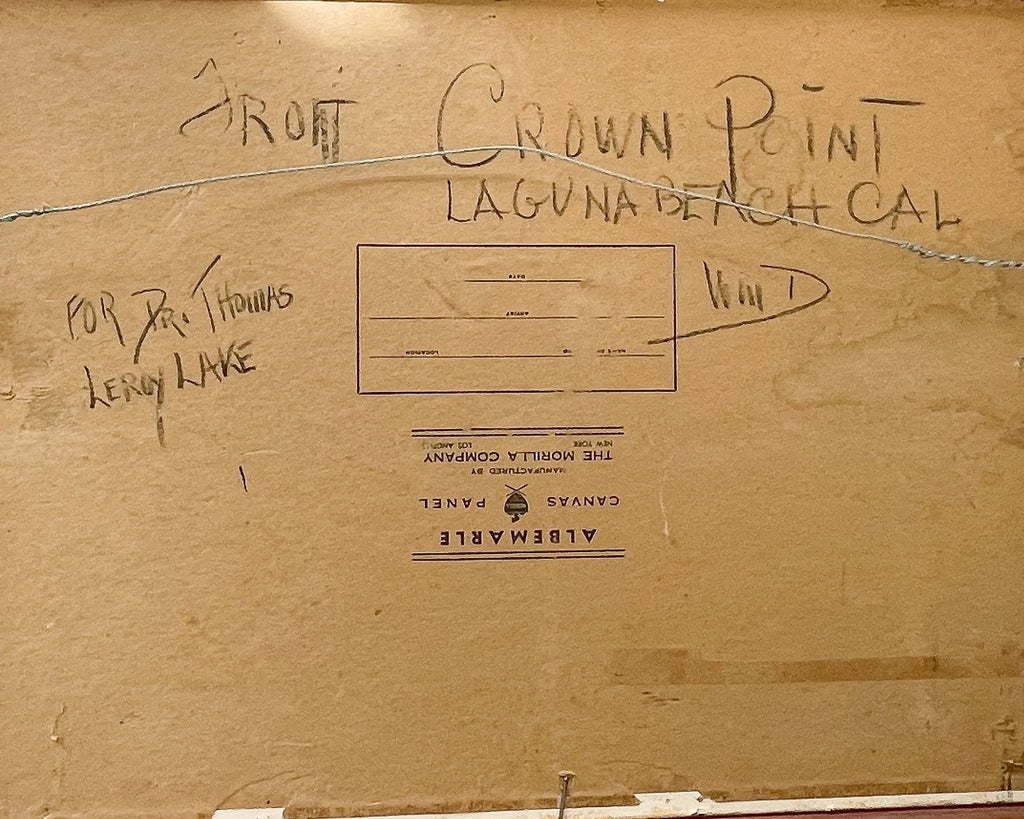 FROM CROWN POINT
LAGUNA BEACH CAL
FOR DR. THOMAS
LEROY LAKE
Wm D
DATE
ARTIST
NAME OF
LOCATION
ALBEMARLE
CANVAS PANEL
MANUFACTURED BY
THE MORILLA COMPANY
NEW YORK LOS ANGELES